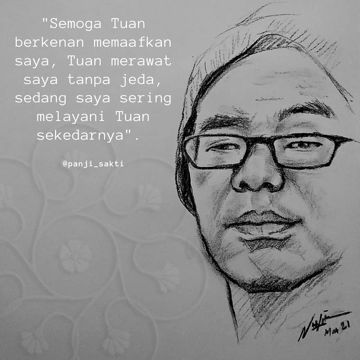 "Semoga Tuan
berkenan memaafkan
saya, Tuan merawat
saya tanpa jeda,
sedang saya sering
melayani Tuan
sekedarnya".
@panji_sakti